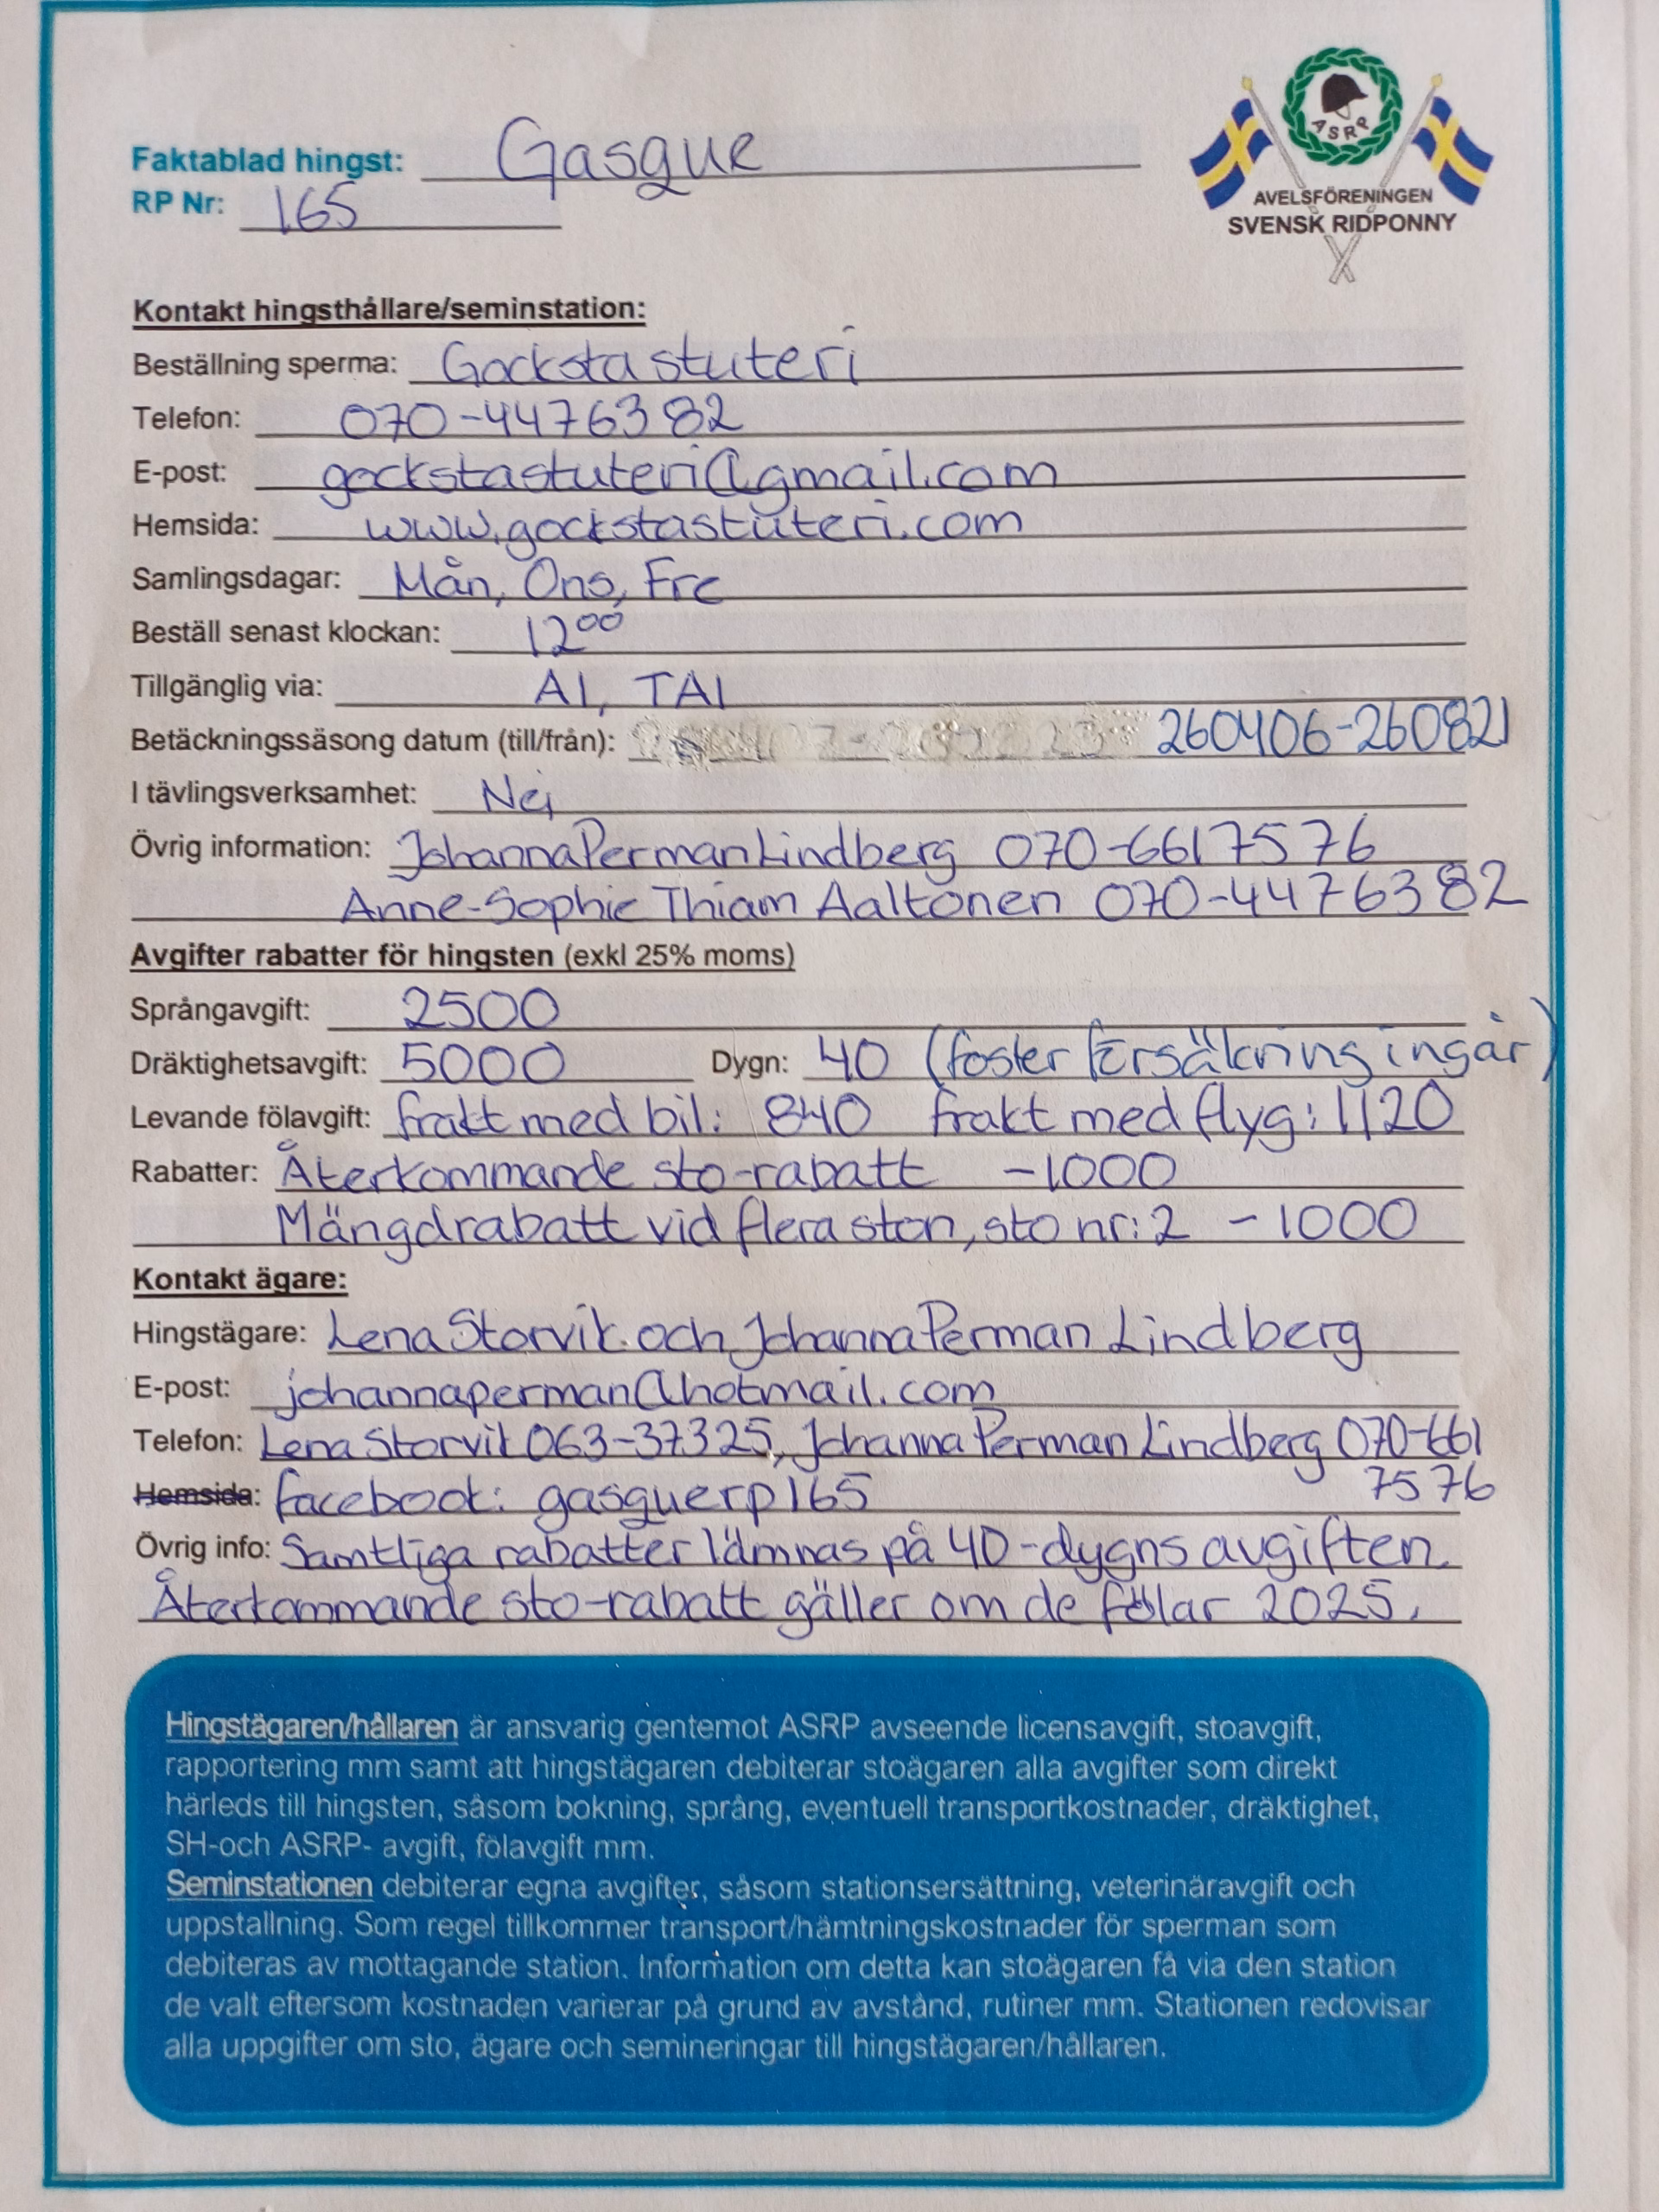 ASRP
AVELSFÖRENINGEN
SVENSK RIDPONNY
Faktablad hingst: Gasgue
RP Nr: 165
Kontakt hingsthållare/seminstation:
Beställning sperma: Gocksta stuteri
Telefon: 070-4476382
E-post: gockstastuteri@gmail.com
Hemsida: www.gockstastuteri.com
Samlingsdagar: Mån, Ons, Fre
Beställ senast klockan: 12⁰⁰
Tillgänglig via: AI, TAI
Betäckningssäsong datum (till/från): 260406-260821
I tävlingsverksamhet: Nej
Övrig information: Johanna Perman Lindberg 070-6617576
Anne-Sophie Thiam Aaltonen 070-4476382
Avgifter rabatter för hingsten (exkl 25% moms)
Språngavgift: 2500
Dräktighetsavgift: 5000 Dygn: 40 (foster försäkring ingår)
Levande fölavgift: frakt med bil: 840 frakt med flyg: 1120
Rabatter: Återkommande sto-rabatt -1000
Mängdrabatt vid flera ston, sto nr: 2 -1000
Kontakt ägare:
Hingstägare: Lena Storvik och Johanna Perman Lindberg
E-post: johannaperman@hotmail.com
Telefon: Lena Storvik 063-37325, Johanna Perman Lindberg 070-661
7576
Hemsida: facebook: gasguerp165
Övrig info: Samtliga rabatter lämnas på 40-dygns avgiften.
Återkommande sto-rabatt gäller om de fölar 2025.
Hingstägaren/hållaren är ansvarig gentemot ASRP avseende licensavgift, stoavgift,
rapportering mm samt att hingstägaren debiterar stoägaren alla avgifter som direkt
härleds till hingsten, såsom bokning, språng, eventuell transportkostnader, dräktighet,
SH-och ASRP- avgift, fölavgift mm.
Seminstationen debiterar egna avgifter, såsom stationsersättning, veterinäravgift och
uppstallning. Som regel tillkommer transport/hämtningskostnader för sperman som
debiteras av mottagande station. Information om detta kan stoägaren få via den station
de valt eftersom kostnaden varierar på grund av avstånd, rutiner mm. Stationen redovisar
alla uppgifter om sto, ägare och semineringar till hingstägaren/hållaren.